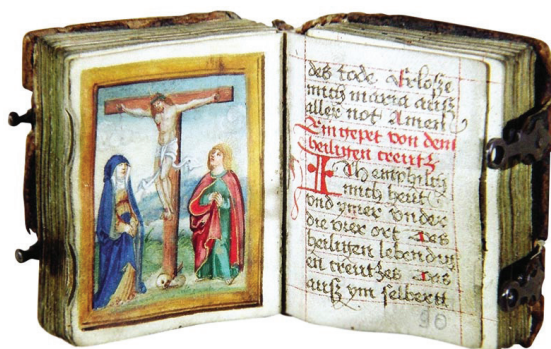 des tode erlose
mich maria auß
aller not Amen
Ein gepet von dem
heiligen creutz
Ich emphilch
mich heut
vnd ymer vnder
die vier ort des
heiligen lebendig
en creutzes des
auß ym selbert
90